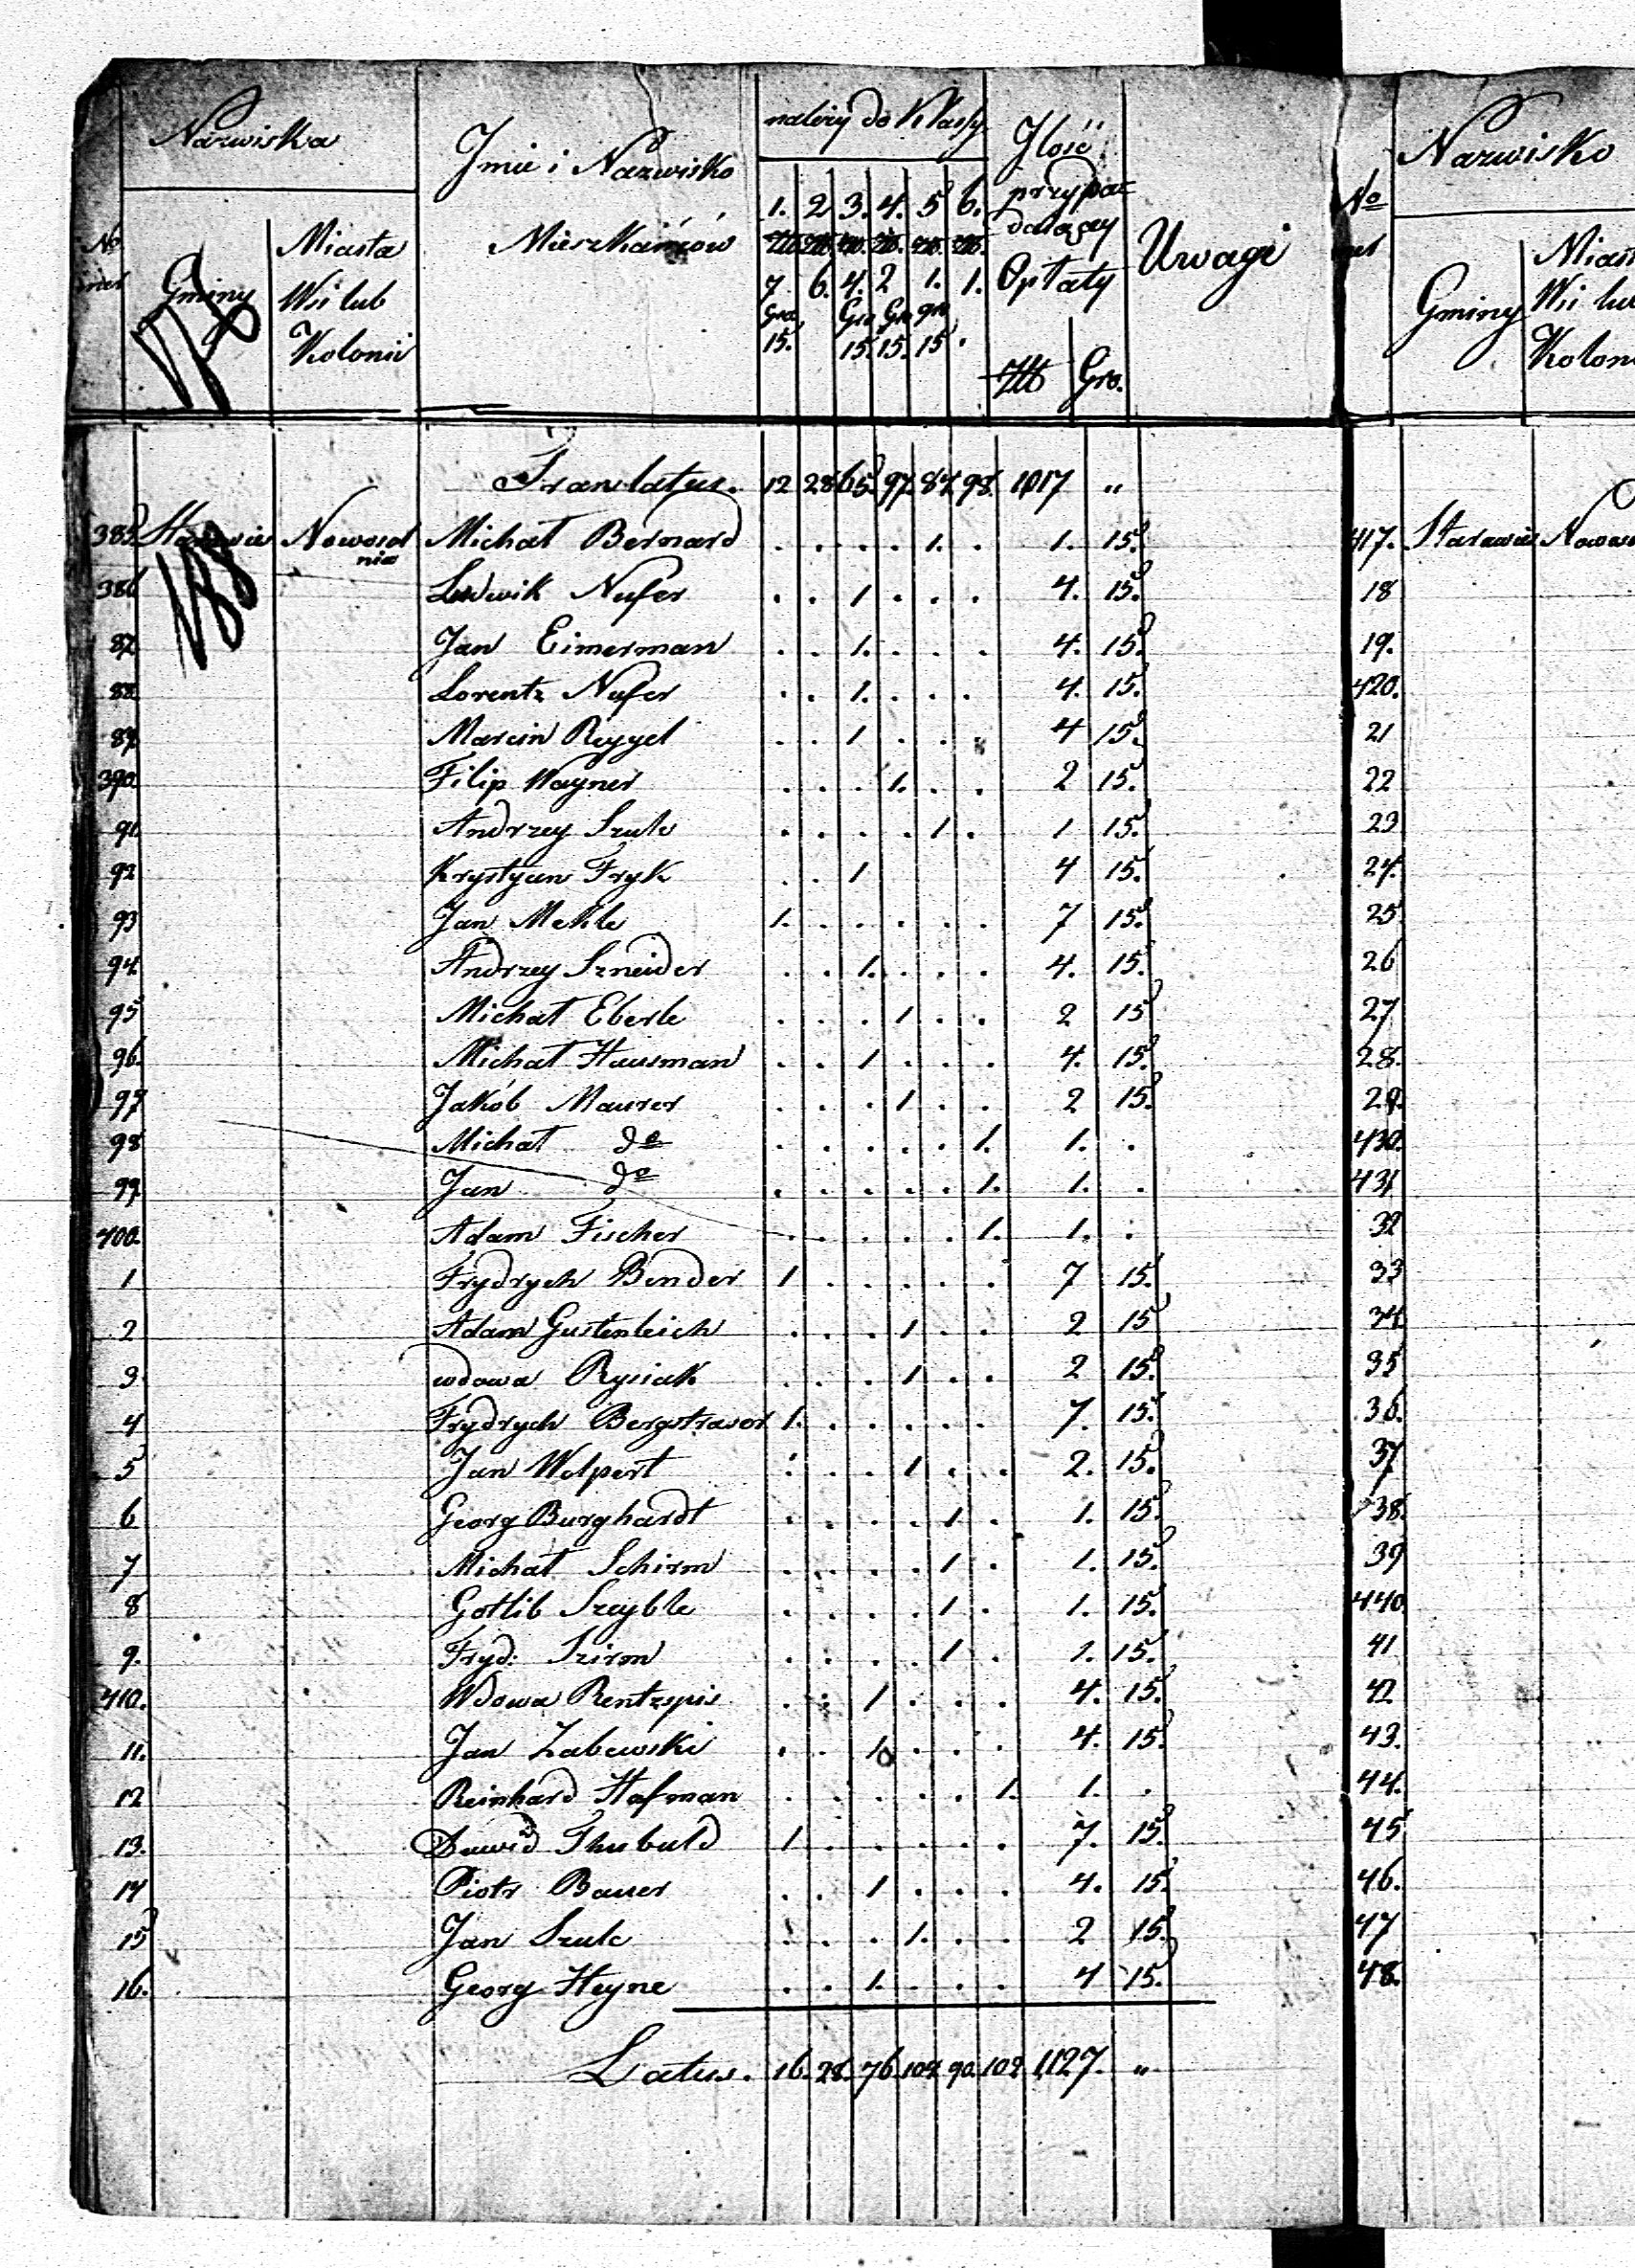 Nazwiska
Jmie i Nazwisko
Mieszkańców
należy do Klassy
Jlość
przypa-
daiącey
Opłaty
Uwagi
No
Gminy
Miasta
Wsi lub
Kolonii
1. 2 3. 4. 5 6.
Złt. Złt. Złt. Złt. Złt. Złt.
7. 6. 4. 2 1. 1.
Gro Gro Gro gro
15. 15. 15. 15.
Złt Gro.
Translatus. 12 28 65. 97. 87. 98. 1017 "
385. Starawieś Nowosol
nia Michał Bernard . . . . 1. . 1. 15.
386 Ludwik Nufer . . 1 . . . 4. 15.
87. Jan Eimerman . . 1. . . . 4. 15.
88. Lorentz Nufer . . 1. . . . 4. 15.
89. Marcin Reygel . . 1 . . . 4 15.
390. Filip Wayner . . . 1. . . 2 15.
91. Andrzey Szulc . . . . 1 . 1 15.
92 Krystyan Fryk . . 1 4 15.
93 Jan Mehle 1. . . . . . 7 15.
94. Andrzey Szneider . . 1. . . . 4. 15.
95 Michał Eberle . . . 1 . . 2 15
96. Michał Hausman . . 1 . . . 4. 15.
97 Jakób Maurer . . . 1 . . 2 15.
98 Michał do . . . . . 1. 1. .
99. Jan do . . . . . 1. 1. .
400. Adam Fischer . . . . . 1. 1. .
1 Frydrych Bender 1 . . . . . 7 15.
2 Adam Gustenleich . . . 1 . . 2 15
3 wdowa Rysiak . . . 1 . . 2 15.
4 Frydrych Bergstraser 1. . . . . . 7. 15.
5 Jan Wolpert . . . 1 . . 2. 15.
6 Georg Burghardt . . . . 1 . 1. 15.
7 Michał Schirm . . . . 1 . 1. 15.
8 Gotlib Szeyble . . . . 1 . 1. 15.
9. Fryd: Szirm . . . . 1 . 1. 15.
410. Wdowa Rentzspis . . 1 . . . 4. 15.
11. Jan Zabewski . . 1 . . . 4. 15.
12 Reinhard Hafman . . . . . 1. 1. .
13. Dawid Thubuld 1 . . . . . 7. 15.
14 Piotr Bauer . . 1 . . . 4. 15.
15 Jan Szulc . . . 1. . . 2 15.
16. Georg Heyne . . 1. . . . 4 15.
Latus. 16. 28. 76. 102. 90. 102 1,127. "
Nazwisko
No
Gminy
Wsi
417. Starawieś
18
19.
420.
21
22
23
24.
25
26
27
28.
29.
430.
431
32
33
34.
35
36.
37
38.
39
440
41
42
43.
44.
45
46.
47
48.